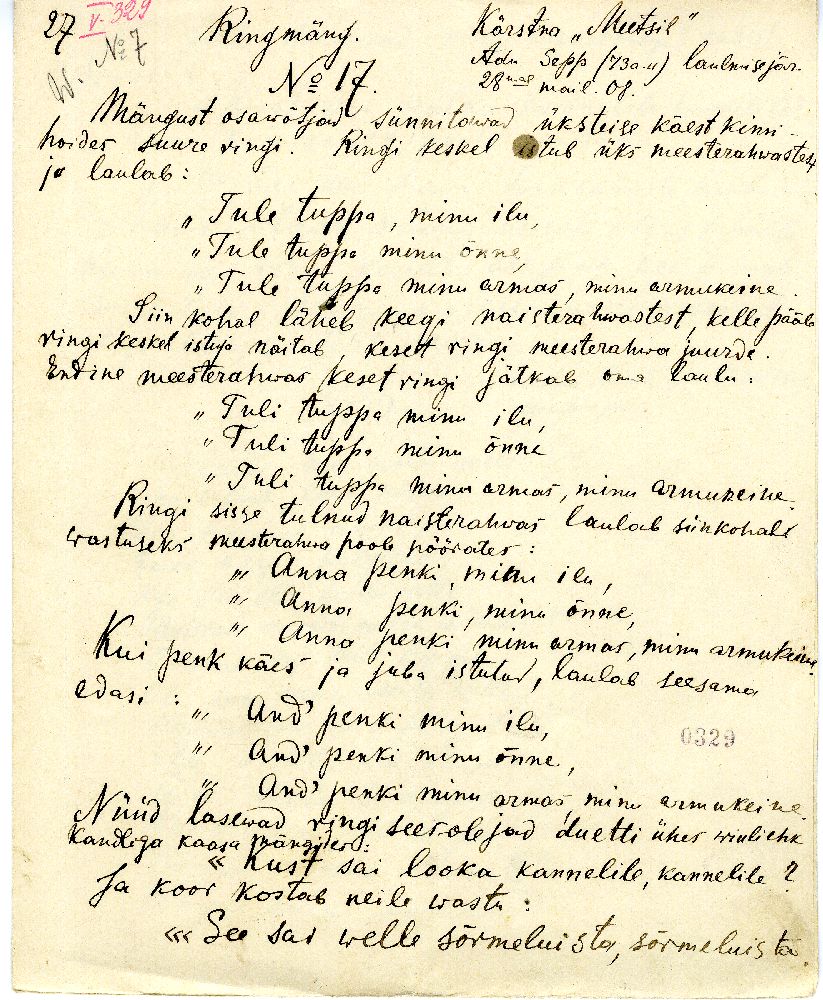 27 V. 329
W. No 7
Ringmäng.
No 17.
Kärstna „Meetsil"
Adu Sepp (73 a. v.) laulmise jär.
28mal mail. 08.
Mängust osawõtjad sünnitawad üksteise käest kinni
hoides suure ringi. Ringi keskel istub üks meesterahwastest
ja laulab:
„Tule tuppa, minu ilu,
„Tule tuppa minu õnne,
„Tule tuppa minu armas, minu armukeine.
Siin kohal läheb keegi naisterahwastest, kelle pääle
ringi keskel istuja näitab, keset ringi meesterahwa juurde.
Endine meesterahwas keset ringi jätkab oma laulu:
„Tuli tuppa minu ilu,
„Tuli tuppa minu õnne
„Tuli tuppa minu armas, minu armukeine.
Ringi sisse tulnud naisterahwas laulab siinkohal
wastuseks meesterahwa poole pöörates:
„, Anna penki, minu ilu,
„, Anna penki, minu õnne,
„, Anna penki minu armas, minu armukeine.
Kui penk käes ja juba istutud, laulab seesama
edasi:
„, And' penki minu ilu,
„, And' penki minu õnne,
0329
„, And' penki minu armas, minu armukeine.
Nüüd lasewad ringi sees olejad duetti ühes wiuli ehk
kandlega kaasa mängides:
« Kust sai looka kannelile, kannelile?
Ja koor kostab neile wastu:
««« See sai welle sõrmeluista, sõrmeluista.